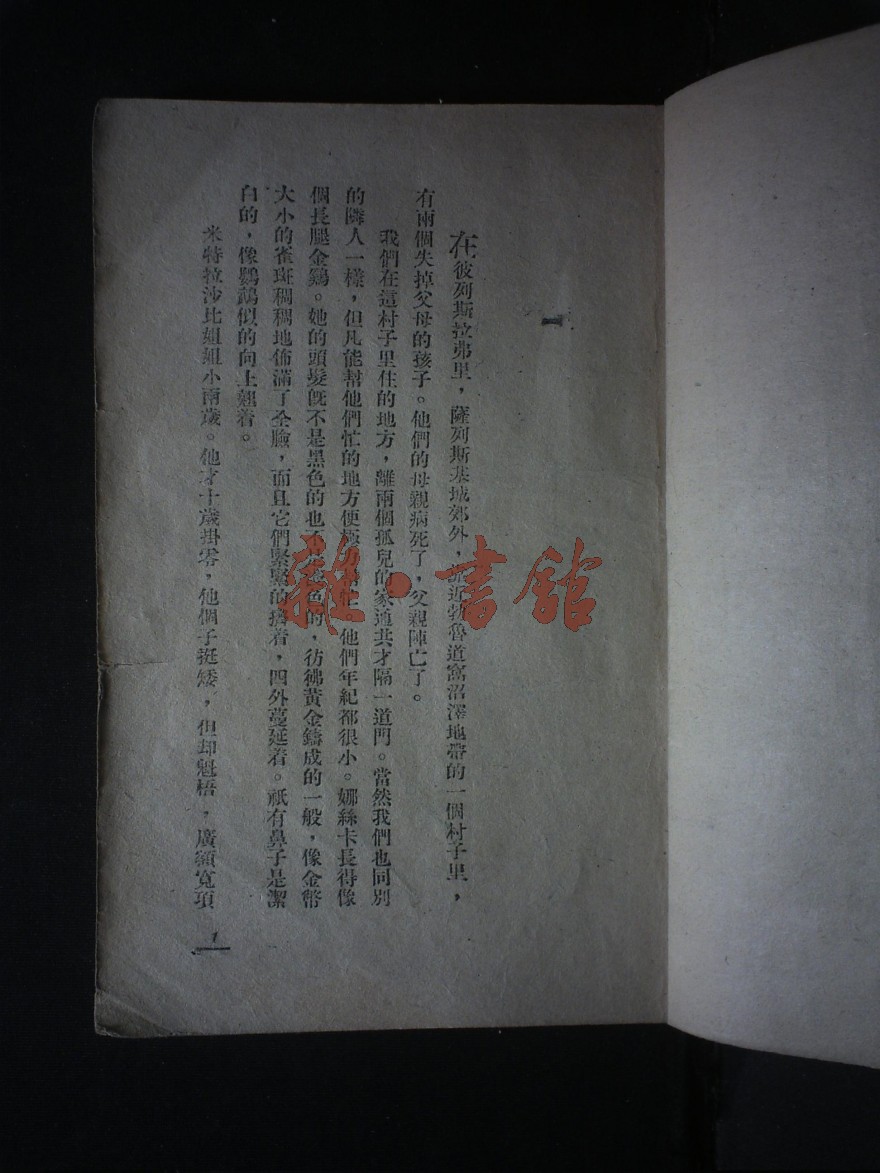 一
在彼列斯拉弗里，薩列斯基城郊外，靠近勃魯道窩沼澤地帶的一個村子里，
有兩個失掉父母的孩子。他們的母親病死了，父親陣亡了。
我們在這村子里住的地方，離兩個孤兒的家通共才隔一道門。當然我們也同別
的隣人一樣，但凡能幫他們忙的地方便極力幫忙。他們年紀都很小。娜絲卡長得像
個長腿金鷄。她的頭髮旣不是黑色的也不是色的，彷彿黃金鑄成的一般，像金幣
大小的雀斑稠稠地佈滿了全臉，而且它們緊緊的擠着，四外蔓延着。祇有鼻子是潔
白的，像鸚鵡似的向上翹着。
米特拉沙比姐姐小兩歲。他才十歲掛零，他個子挺矮，但却魁梧，廣額寬項
1
雜·書館